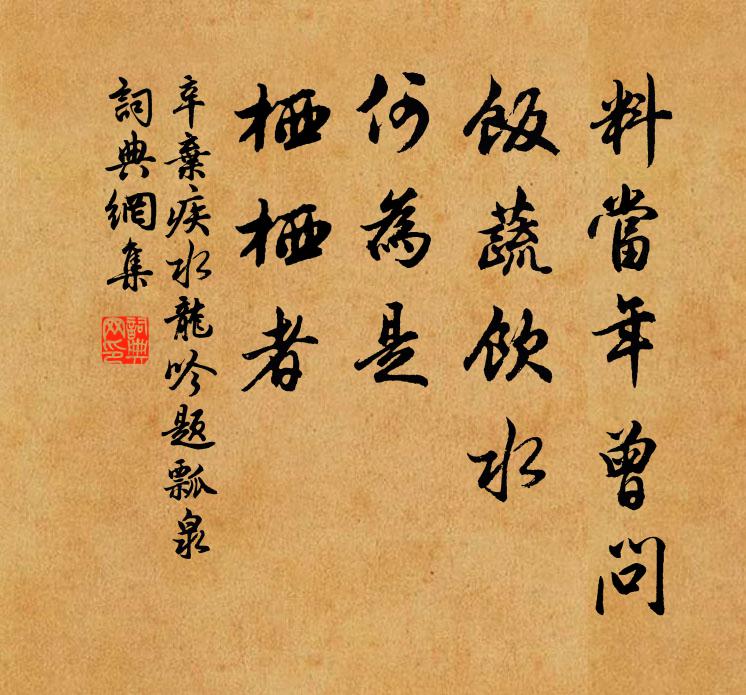 料當年曾問
飯蔬飲水
何為是
栖栖者
辛棄疾水龍吟題瓢泉
詞典網集
詞典網印